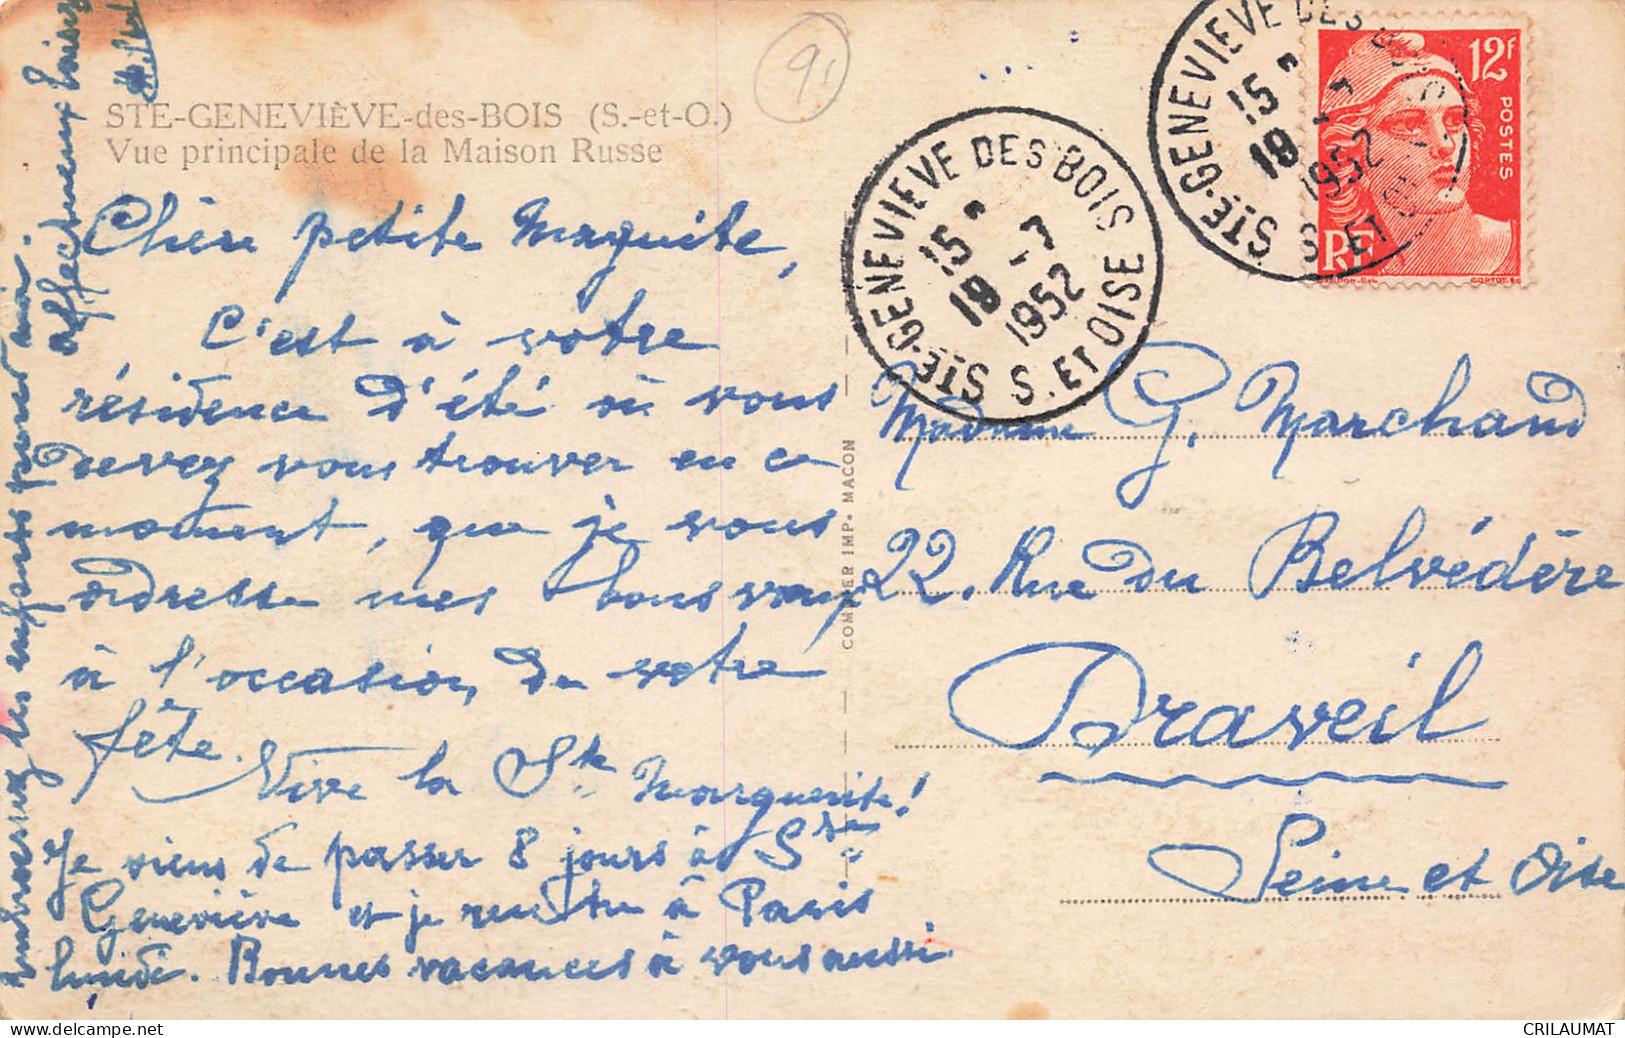 STE-GENEVIÈVE-des-BOIS (S.-et-O.)
Vue principale de la Maison Russe
91
Chère petite Maguite,
C'est à votre
résidence d'été où vous
devez vous trouver en ce
moment, que je vous
adresse mes bons vœux
à l'occasion de votre
fête.
Vive la Ste Marguerite!
Je viens de passer 8 jours à Ste
Geneviève et je rentre à Paris
lundi. Bonnes vacances à vous aussi
embrassez les enfants pour moi.
affectueux baisers
COMBIER IMP. MACON
STE-GENEVIEVE DES BOIS
S. ET OISE
15 H
18 -7
1952
STE-GENEVIEVE DES
S. ET
15
18 -7
1952
12F
POSTES
RF
Madame G. Marchand
22. Rue du Belvédère
Draveil
Seine et Oise
CRILAUMAT